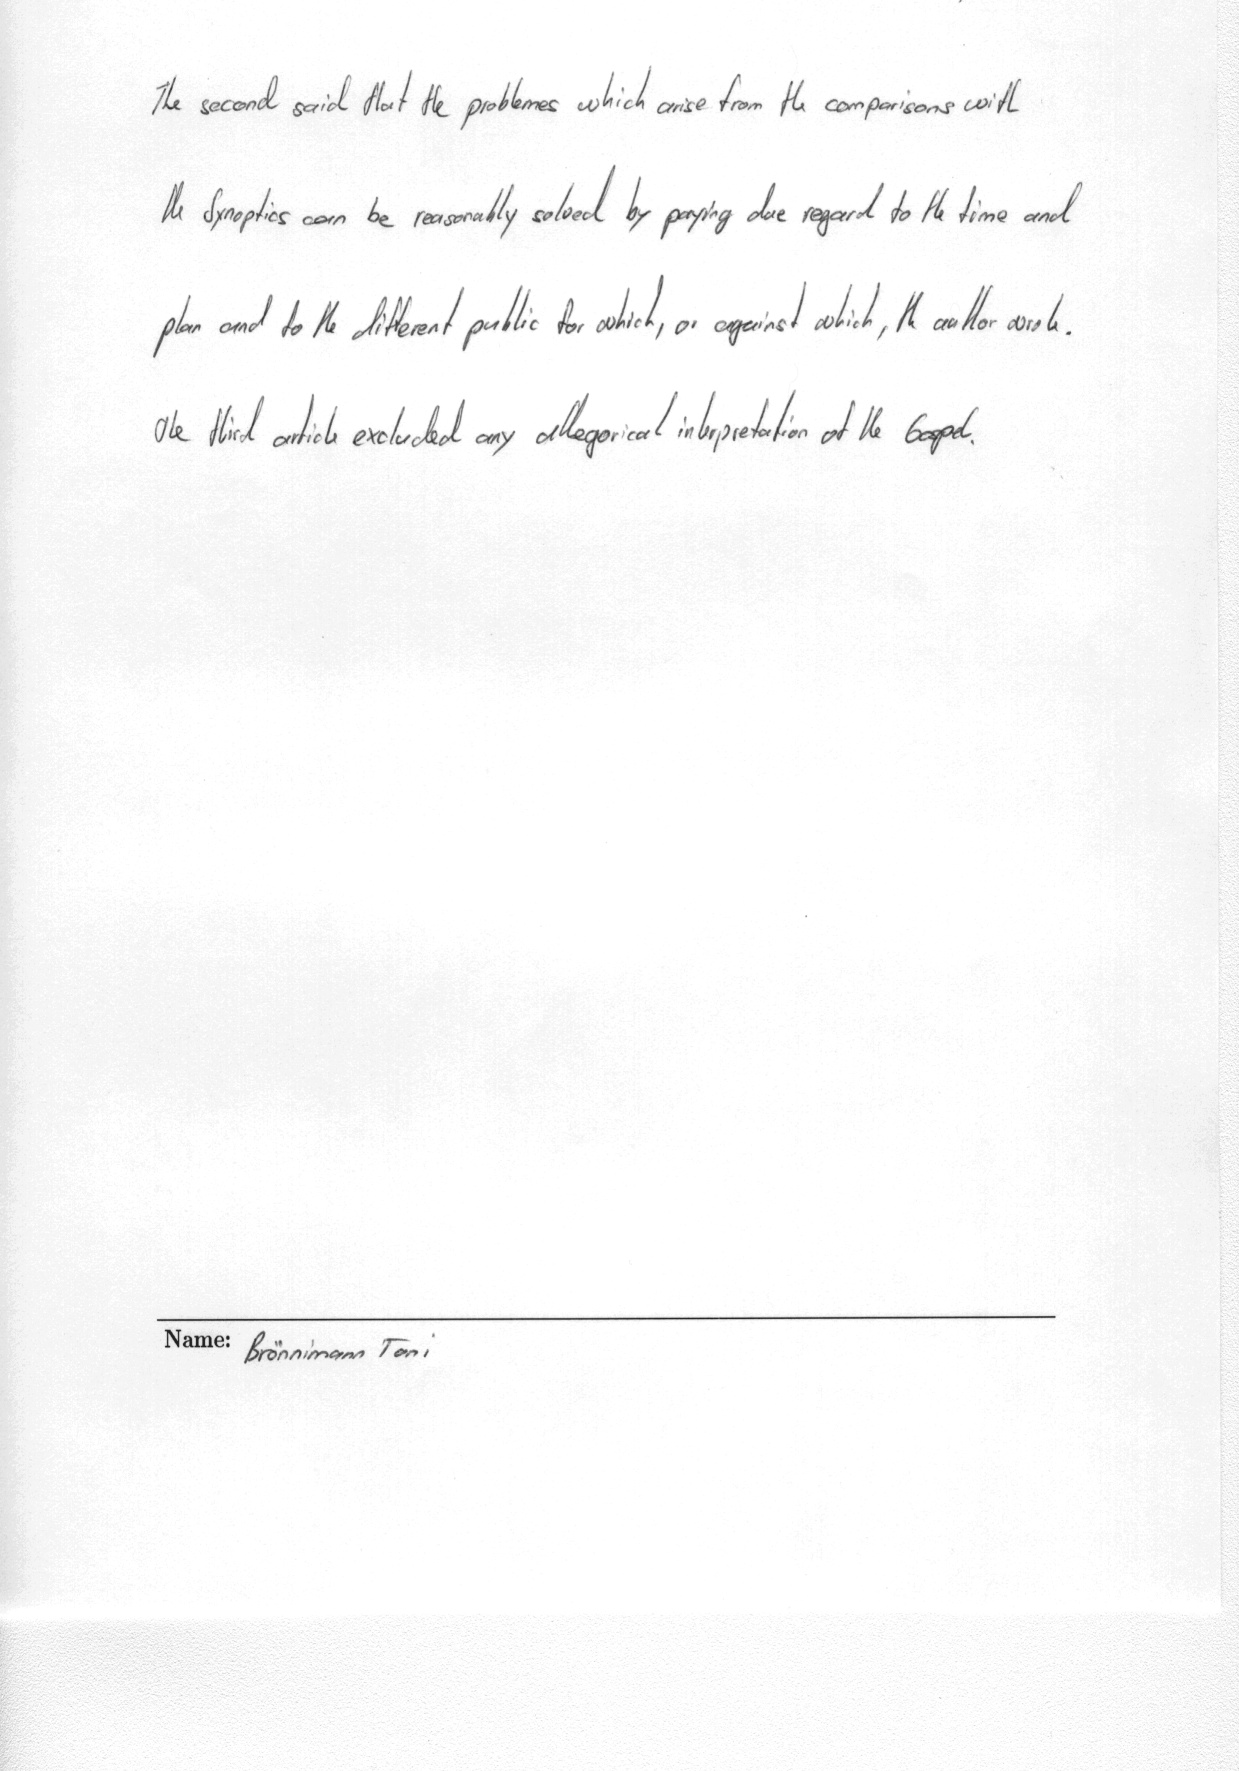 The second said that the problemes which arise from the comparisons with
the Synoptics can be reasonably solved by paying due regard to the time and
plan and to the different public for which, or against which, the author wrote.
The third article excluded any allegorical interpretation of the Gospel.
Name: Brönnimann Toni